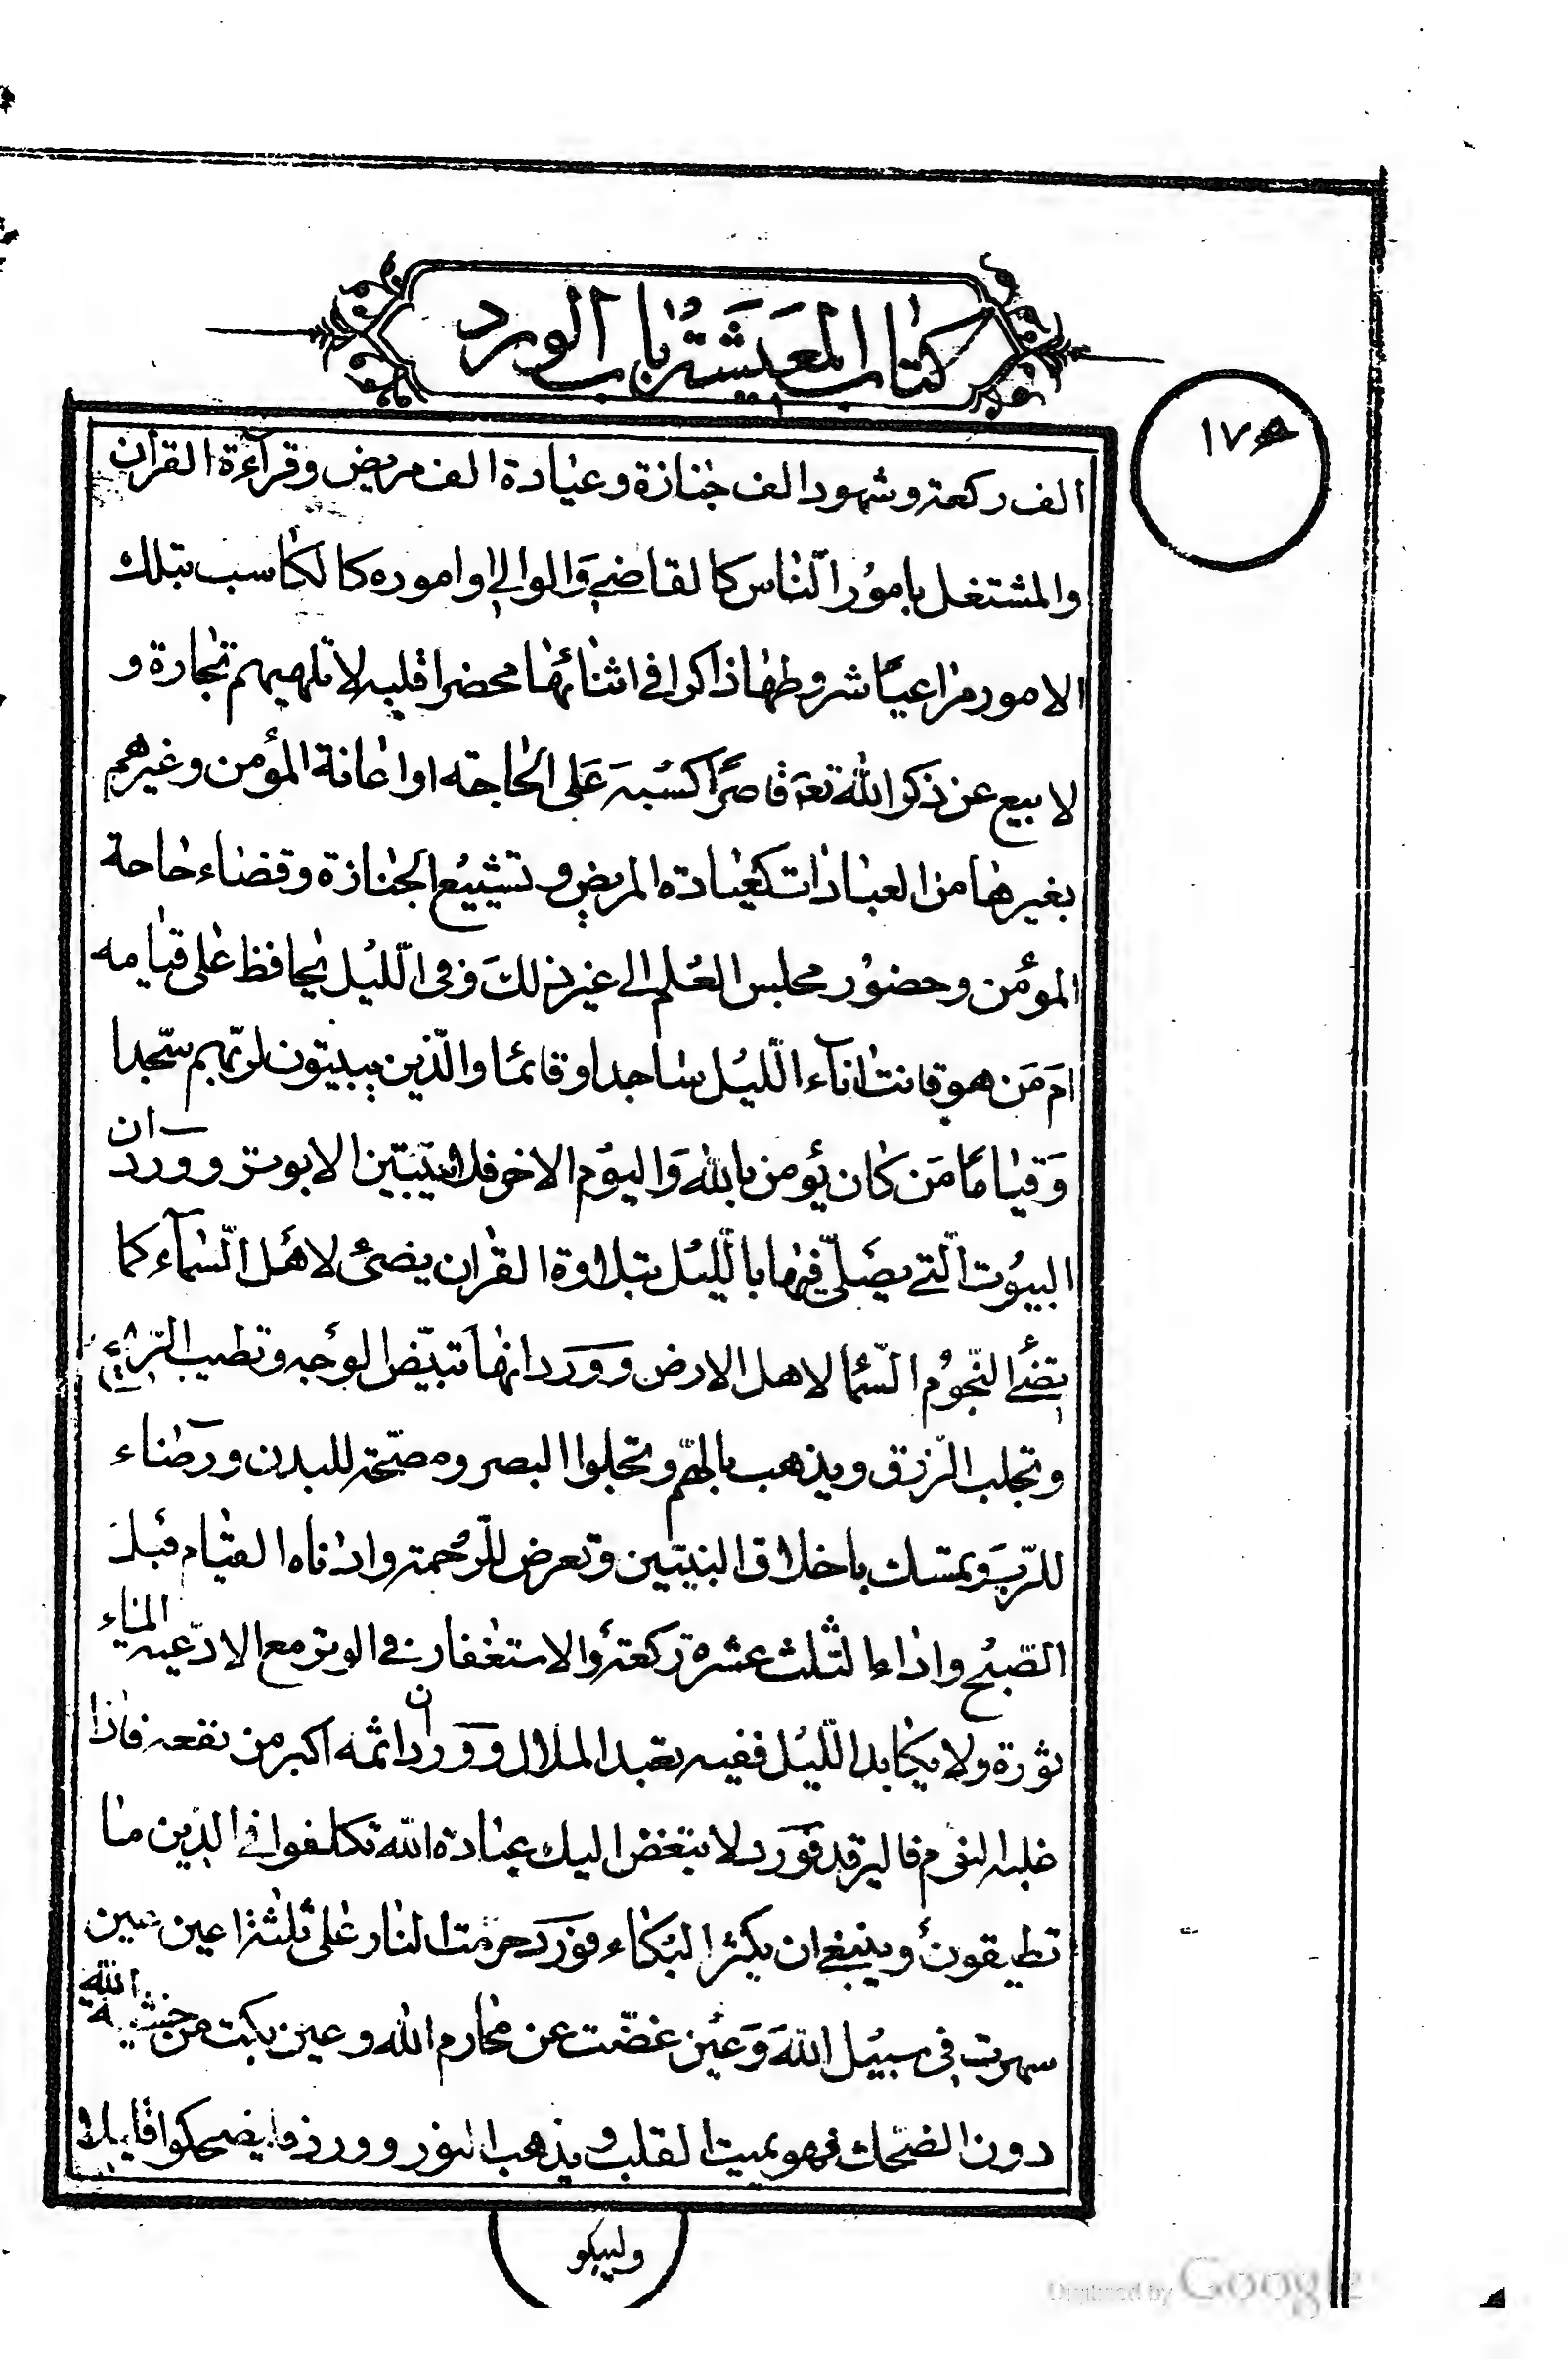 كتاب المعيشة باب الورد
الف ركعة وشهود الف جنازة وعيادة الف مريض وقرآءة القرآن
والمشتغل بامور الناس كالقاضي والوالي او اموره كالكاسب بتلك
الامور مراعيا شروطها ذاكرا في اثنائها محضرا قلبه لا تلهيهم تجارة و
لا بيع عن ذكر الله تعه قاصرا كسبه على الحاجته او اعانة المؤمن وغيرهم
بغيرها من العبادات كعيادة المريض و تشييع الجنازة وقضاء حاجة
المؤمن وحضور مجلس العلم الى غير ذلك وفى الليل يحافظ على قيامه
ام من هو قانت اناء الليل ساجدا وقائما والذين يبيتون لربهم سجدا
وقياما من كان يؤمن بالله واليوم الاخر فلا يبيتن الا بوتر وورد ان
البيوت التي يصلى فيها بالليل بتلاوة القران يضئ لاهل السماء كما
تضئ النجوم السما لاهل الارض وورد انها تبيض الوجه وتطيب الريح
وتجلب الرزق ويذهب بالهم وتجلوا البصر ومصحة للبدن ورضاء
للرب وتمسك باخلاق النبيين وتعرض للرحمة وادناه القيام قبل
الصبح واداء الثلث عشرة ركعة والاستغفار في الوتر مع الادعيه الماء
ثورة ولا يكابد الليل ففيه بقبد الملال وورد ان اثمه اكبر من نفعه فاذا
غلبه النوم فاليرقد فورد لا تبغض اليك عبادة الله تكلفوا في الدين ما
تطيقون وينبغي ان يكثر البكاء فورد حرمت النار على ثلثة اعين عين
سهرت في سبيل الله وعين غضت عن محارم الله وعين بكت من خشية الله
دون الضحك فهو يميت القلب ويذهب النور وورد فليضحكوا قليلا
وليبكو
Digitized by Google